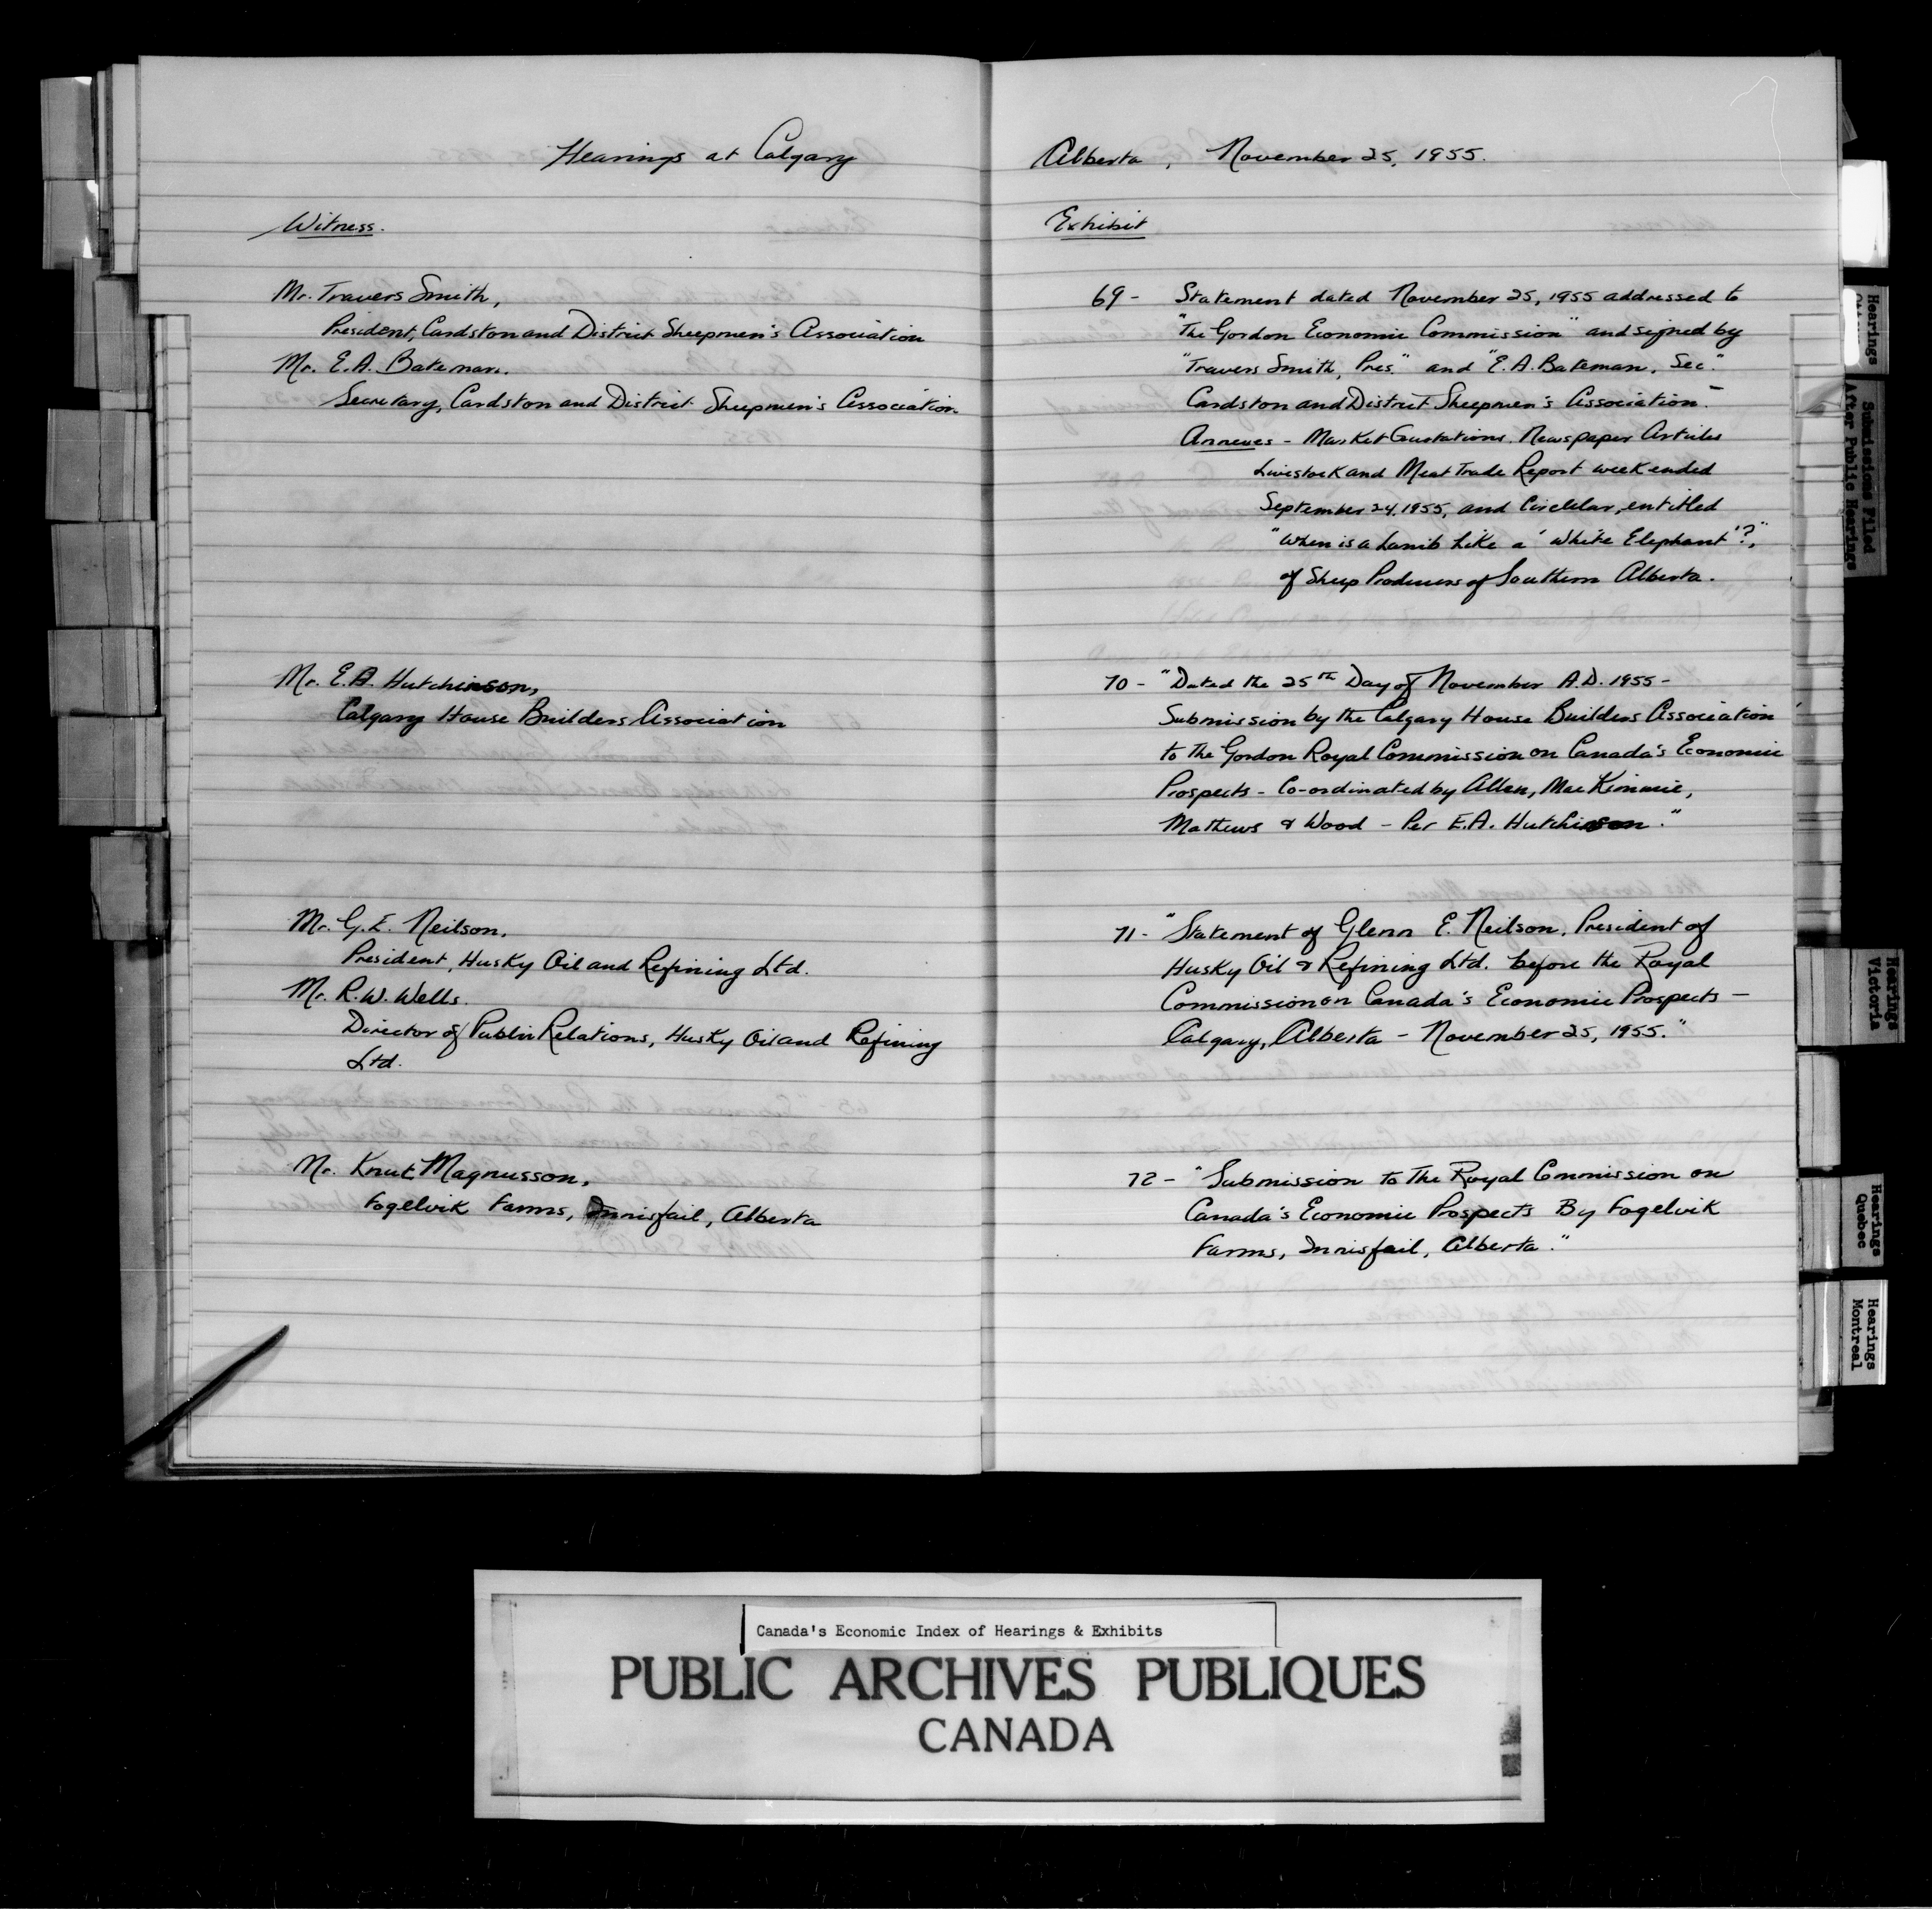 Hearings at Calgary
Witness.
Mr. Travers Smith,
President, Cardston and District Sheepmen's Association
Mr. E.A. Bateman.
Secretary, Cardston and District Sheepmen's Association
Mr. E.A. Hutchinson,
Calgary House Builders Association
Mr. G.E. Neilson.
President, Husky Oil and Refining Ltd.
Mr. R.W. Wells.
Director of Public Relations, Husky Oil and Refining
Ltd.
Mr. Knut Magnusson,
Fogelvik Farms, Innisfail, Alberta
Alberta, November 25, 1955.
Exhibit
69 - Statement dated November 25, 1955 addressed to
"The Gordon Economic Commission" and signed by
"Travers Smith, Pres." and "E.A. Bateman, Sec."
Cardston and District Sheepmen's Association. -
Annexes - Market Quotations, Newspaper Articles
Livestock and Meat Trade Report week ended
September 24, 1955, and Circular, entitled
"When is a Lamb Like a 'White Elephant'?,"
of Sheep Producers of Southern Alberta.
70 - "Dated the 25th Day of November A.D. 1955 -
Submission by the Calgary House Builders Association
to the Gordon Royal Commission on Canada's Economic
Prospects - Co-ordinated by Allen, MacKimmie,
Mathews & Wood - Per E.A. Hutchinson."
71 - "Statement of Glenn E. Neilson, President of
Husky Oil & Refining Ltd. before the Royal
Commission on Canada's Economic Prospects -
Calgary, Alberta - November 25, 1955."
72 - "Submission to The Royal Commission on
Canada's Economic Prospects By Fogelvik
Farms, Innisfail, Alberta."
Hearings
Submissions Filed
After Public Hearings
Hearings
Victoria
Hearings
Quebec
Hearings
Montreal
Canada's Economic Index of Hearings & Exhibits
PUBLIC ARCHIVES PUBLIQUES
CANADA